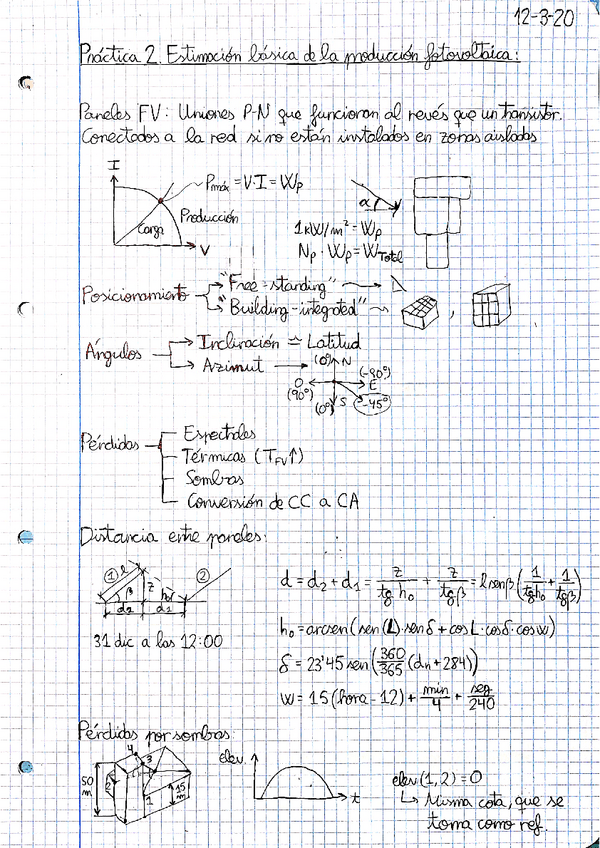 12-3-20
Práctica 2. Estimación básica de la producción fotovoltaica:
Paneles FV: Uniones P-N que funcionan al revés que un transistor.
Conectados a la red si no están instalados en zonas aisladas
I
Pmáx = V·I = Wp
Producción
Carga
V
α
1kW/m² = Wp
Np · Wp = WTotal
Posicionamiento
"Free-standing"
"Building-integrated"
,
Ángulos
Inclinación ≃ Latitud
Azimut
(0º) N
(-90º)
O
E
(90º)
(0º) S
-45º
Pérdidas
Espectrales
Térmicas (TFV↑)
Sombras
Conversión de CC a CA
Distancia entre paneles:
1
l
β
z
h₀
2
d₂
d₁
31 dic a las 12:00
d = d₂ + d₁ = z/tg h₀ + z/tgβ = l senβ (1/tgh₀ + 1/tgβ)
h₀ = arcsen(sen(L)·senδ + cosL·cosδ·cosw)
δ = 23'45 sen(360/365 (dn + 284))
w = 15(hora - 12) + min/4 + seg/240
Pérdidas por sombras
4
3
2
1
50 m
15 m
elev.
t
elev(1,2) = 0
↳ Misma cota, que se
toma como ref.